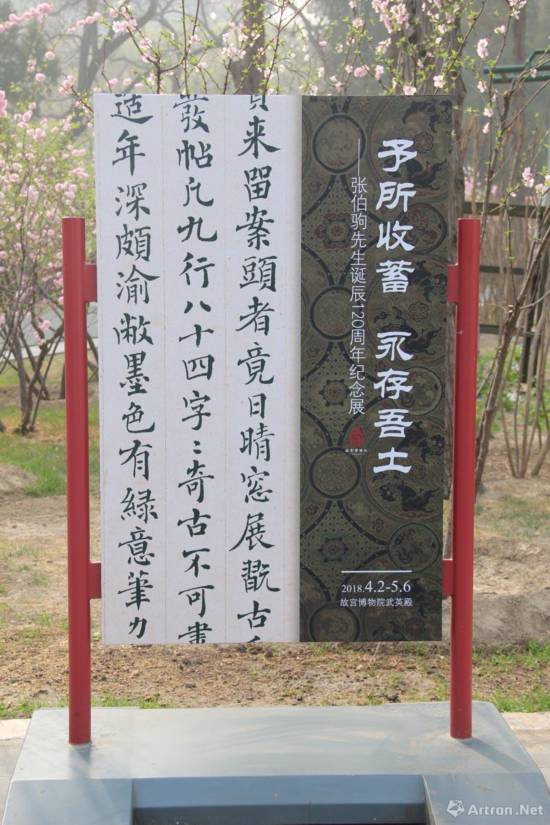 予所收蓄 永存吾土
——张伯驹先生诞辰120周年纪念展
2018.4.2-5.6
故宫博物院武英殿
来留案頭者竟日晴窓展翫古
帖凡九行八十四字〻奇古不可
造年深頗渝敝墨色有緑意筆力
Artron.Net